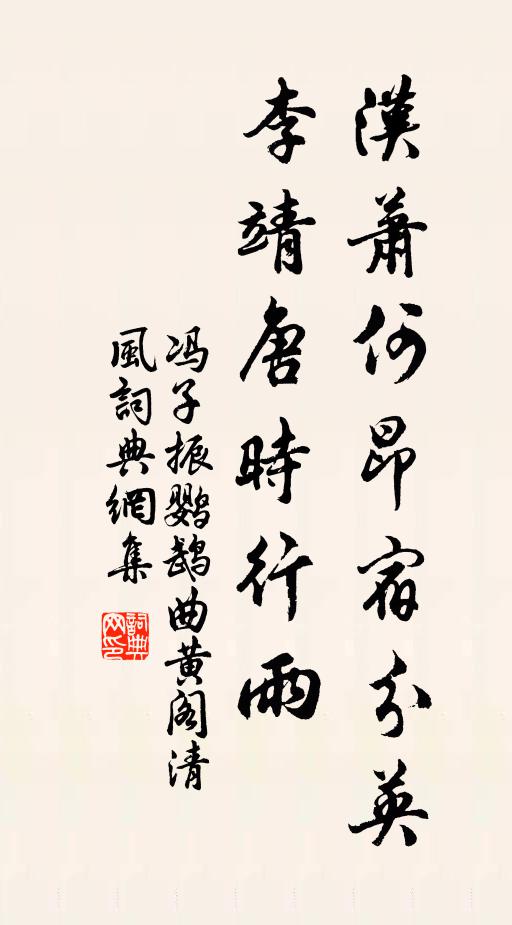 漢蕭何昂宿分英
李靖唐時行雨
冯子振鹦鹉曲黄阁清
風詞典網集
詞典网印